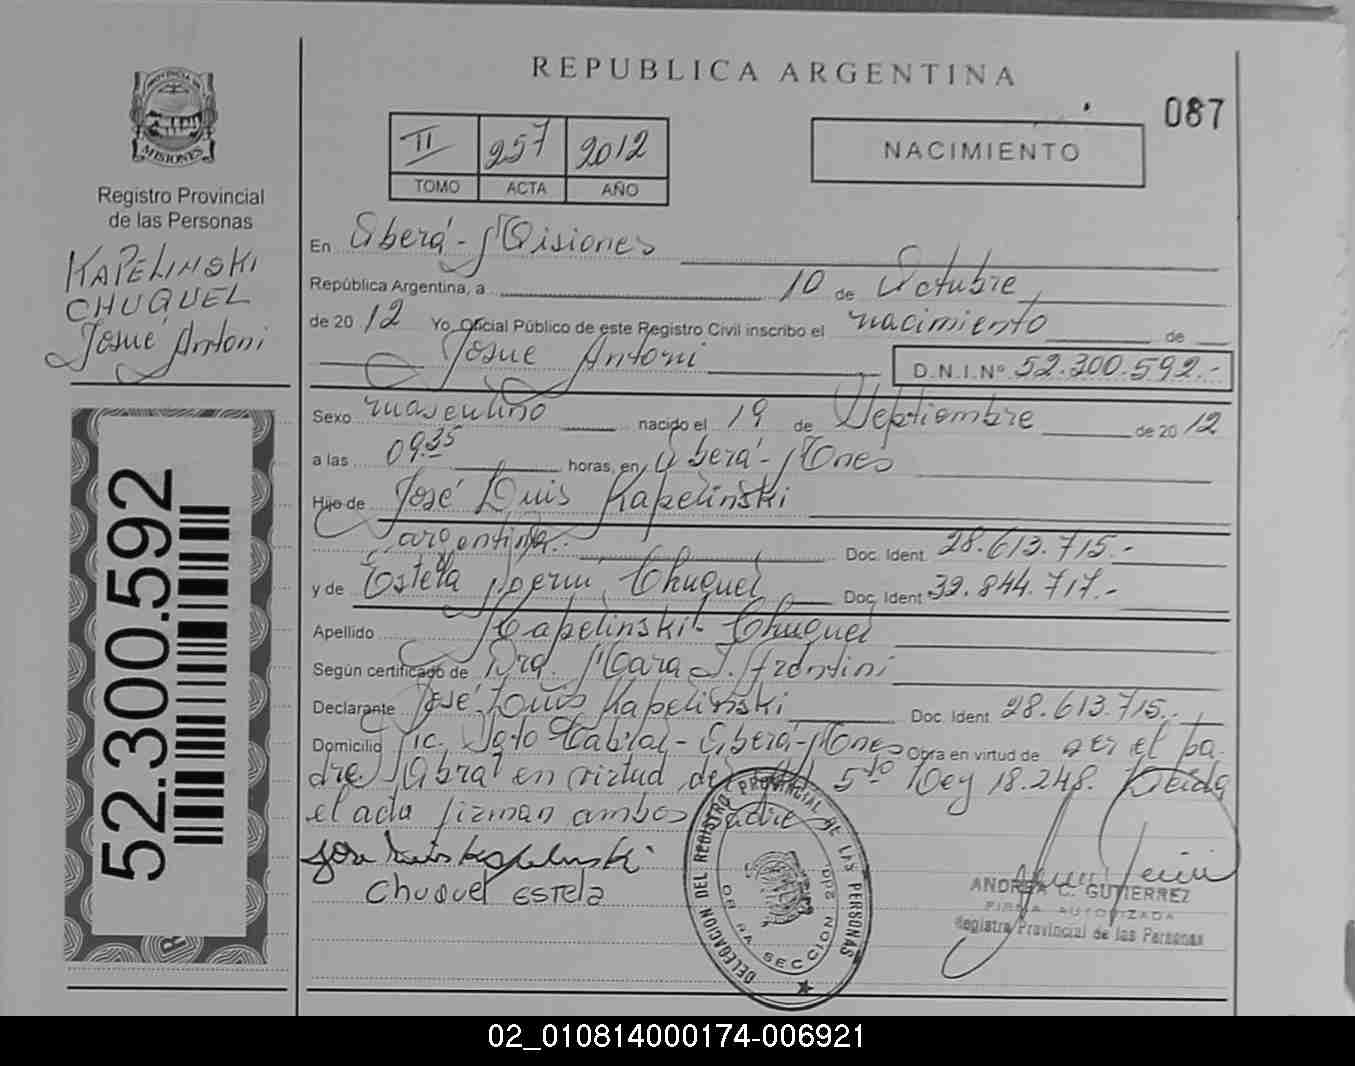 REPUBLICA ARGENTINA
087
PROVINCIA DE
MISIONES
Registro Provincial
de las Personas
KAPELINSKI
CHUQUEL
Josué Antoni
II 257 2012
TOMO ACTA AÑO
NACIMIENTO
En Oberá - Misiones
República Argentina, a 10 de Octubre
de 2012 Yo, Oficial Público de este Registro Civil inscribo el nacimiento de
Josue Antoni
D.N.I.Nº 52.300.592.-
Sexo masculino nacido el 19 de Septiembre de 2012
a las 09.35 horas, en Oberá - Mnes
Hijo de José Luis Kapelinski
argentina.- Doc. Ident. 28.613.715.-
y de Estela Chuquel Doc. Ident. 39.844.717.-
Apellido Kapelinski - Chuquel
Según certificado de Dra. Mara
Declarante José Luis Kapelinski Doc. Ident. 28.613.715.-
Domicilio Cabral - Oberá - Mnes Obra en virtud de ser el pa-
dre. en virtud del 5to Ley 18.248. Leida
el acta firman ambos padres
Jose Luis Kapelinski
Chuquel Estela
52.300.592
DELEGACION DEL REGISTRO PROVINCIAL DE LAS PERSONAS
OBERA SECCION 2da
ANDREA C. GUTIERREZ
FIRMA AUTORIZADA
Registro Provincial de las Personas
02_010814000174-006921